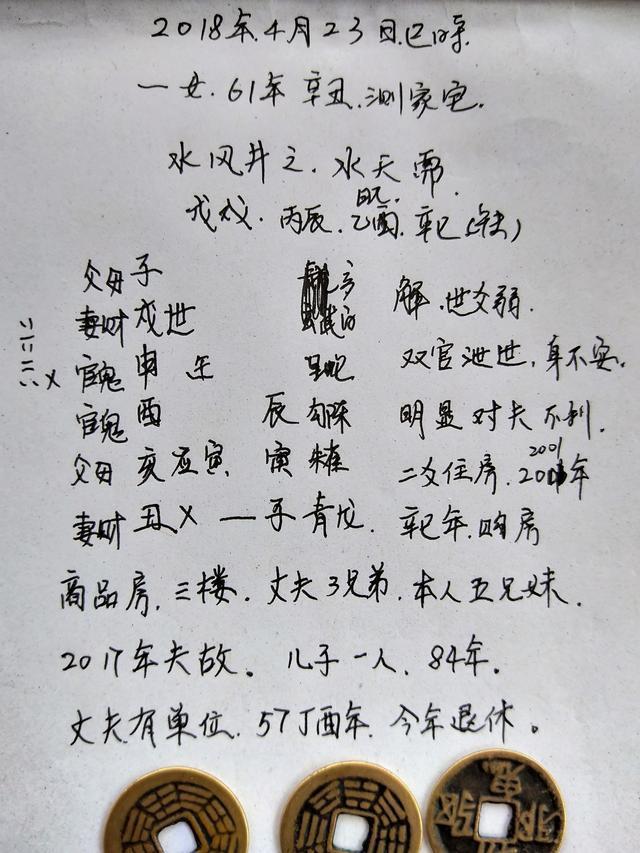 2018年.4月23日.巳时.
一女.61年 辛丑.测家宅.
水风井之.水天需.
戌戌.丙辰.乙酉.辛巳(午未)
父母 子
妻财 戌 世 解.世爻弱.
官鬼 申 午 双官泄世.身不安.
官鬼 酉 辰 勾陈 明显对夫不利.
父母 亥 应 寅 寅 朱雀 二爻住房.2001年
妻财 丑 X — 子 青龙. 辛巳年.购房
商品房.三楼.丈夫3兄弟.本人五兄妹.
2017年夫故。儿子一人.84年.
丈夫有单位.57丁酉年.今年退休。